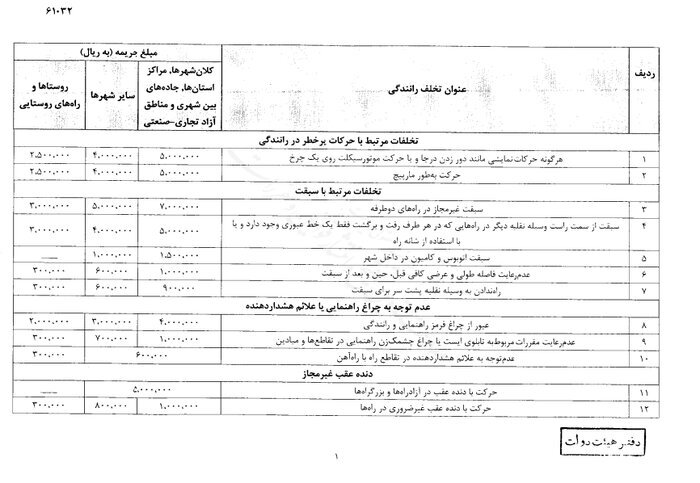 ۶۱۰۳۲
ردیف عنوان تخلف رانندگی مبلغ جریمه (به ریال)
کلان‌شهرها، مراکز استان‌ها، جاده‌های بین شهری و مناطق آزاد تجاری-صنعتی سایر شهرها روستاها و راه‌های روستایی
تخلفات مرتبط با حرکات پرخطر در رانندگی
۱ هرگونه حرکات‌نمایشی مانند دور زدن درجا و یا حرکت موتورسیکلت روی یک چرخ ۵،۰۰۰،۰۰۰ ۴،۰۰۰،۰۰۰ ۲،۵۰۰،۰۰۰
۲ حرکت به‌طور مارپیچ ۵،۰۰۰،۰۰۰ ۴،۰۰۰،۰۰۰ ۲،۵۰۰،۰۰۰
تخلفات مرتبط با سبقت
۳ سبقت غیرمجاز در راه‌های دوطرفه ۷،۰۰۰،۰۰۰ ۵،۰۰۰،۰۰۰ ۳،۰۰۰،۰۰۰
۴ سبقت از سمت راست وسیله نقلیه دیگر در راه‌هایی که در هر طرف رفت و برگشت فقط یک خط عبوری وجود دارد و یا
با استفاده از شانه راه ۵،۰۰۰،۰۰۰ ۴،۰۰۰،۰۰۰ ۳،۰۰۰،۰۰۰
۵ سبقت اتوبوس و کامیون در داخل شهر ۱،۵۰۰،۰۰۰ ۱،۰۰۰،۰۰۰ ــــ
۶ عدم‌رعایت فاصله طولی و عرضی کافی قبل، حین و بعد از سبقت ۱،۰۰۰،۰۰۰ ۶۰۰،۰۰۰ ۳۰۰،۰۰۰
۷ راه‌ندادن به وسیله نقلیه پشت سر برای سبقت ۹۰۰،۰۰۰ ۶۰۰،۰۰۰ ۳۰۰،۰۰۰
عدم توجه به چراغ راهنمایی یا علائم هشداردهنده
۸ عبور از چراغ قرمز راهنمایی و رانندگی ۴،۰۰۰،۰۰۰ ۳،۰۰۰،۰۰۰ ۲،۰۰۰،۰۰۰
۹ عدم‌رعایت مقررات مربوط‌به تابلوی ایست یا چراغ چشمک‌زن راهنمایی در تقاطع‌ها و میادین ۱،۰۰۰،۰۰۰ ۷۰۰،۰۰۰ ۳۰۰،۰۰۰
۱۰ عدم‌توجه به علائم هشداردهنده در تقاطع راه با راه‌آهن ۶۰۰،۰۰۰ ۳۰۰،۰۰۰
دنده عقب غیرمجاز
۱۱ حرکت با دنده عقب در آزادراه‌ها و بزرگراه‌ها ۵،۰۰۰،۰۰۰ ــــ
۱۲ حرکت با دنده عقب غیرضروری در راه‌ها ۱،۰۰۰،۰۰۰ ۸۰۰،۰۰۰ ۳۰۰،۰۰۰
دفتر هیئت دولت
۱